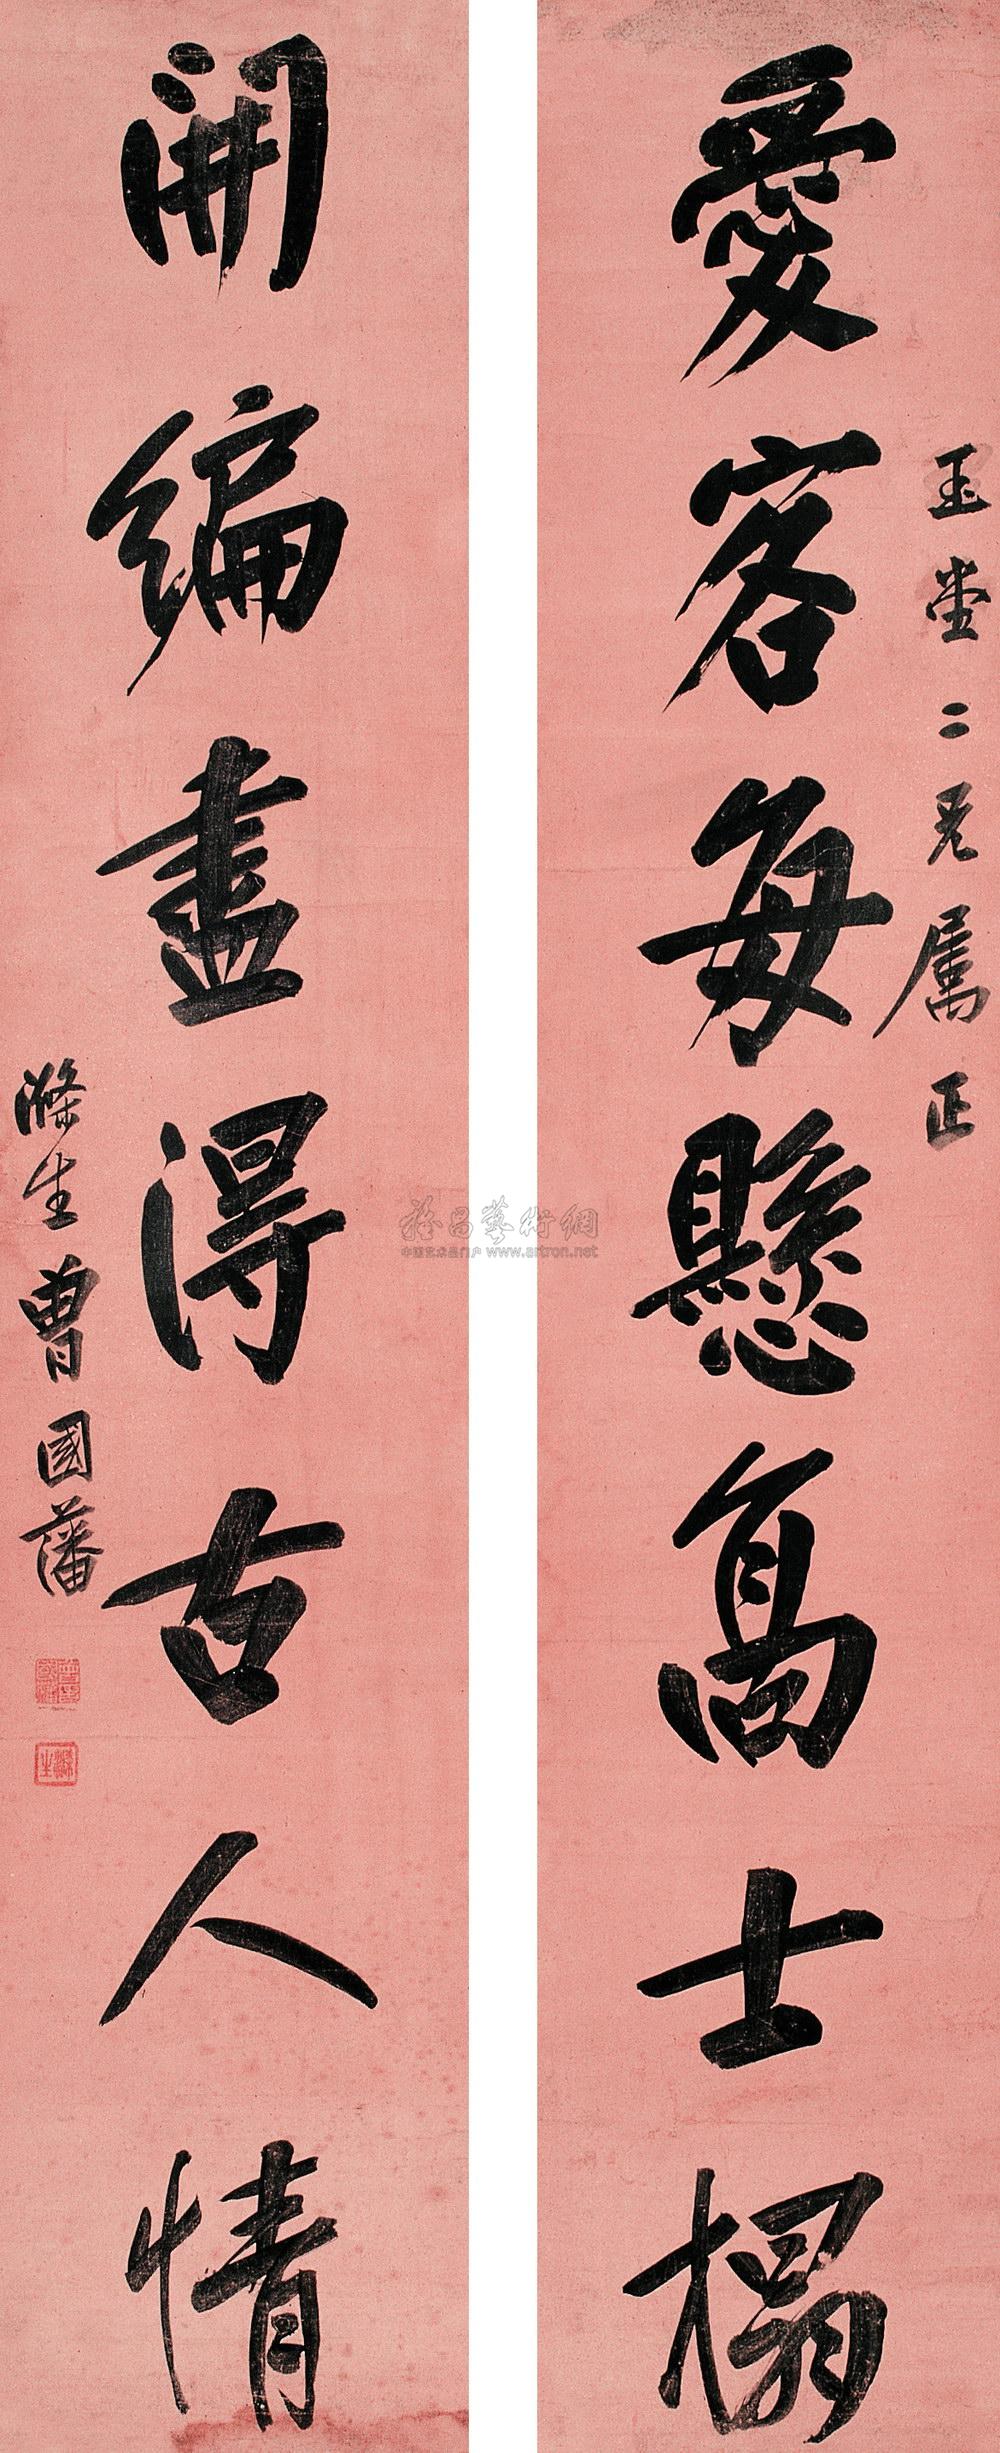 愛客每懸高士榻
玉堂二兄屬正
開編盡得古人情
滌生曾國藩
滌生
雅昌藝術網
中国艺术品门户 www.artron.net